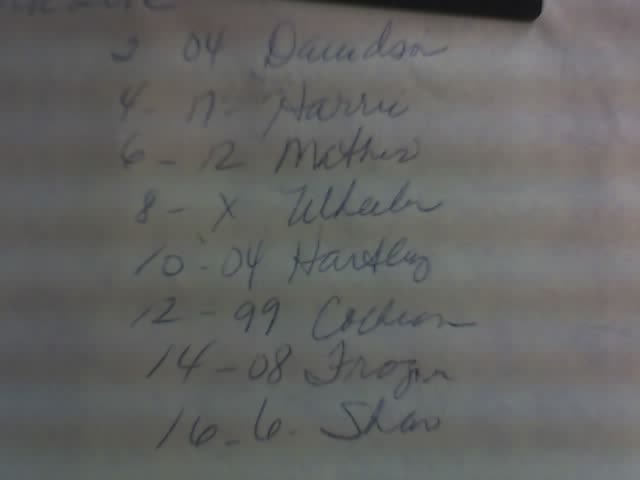 2 04 Davidson
4 - 11 - Harris
6 - 12 Mathis
8 - X Wheeler
10 - 04 Hartley
12 - 99 Cochran
14 - 08 Frazier
16 - 6 - Shaw